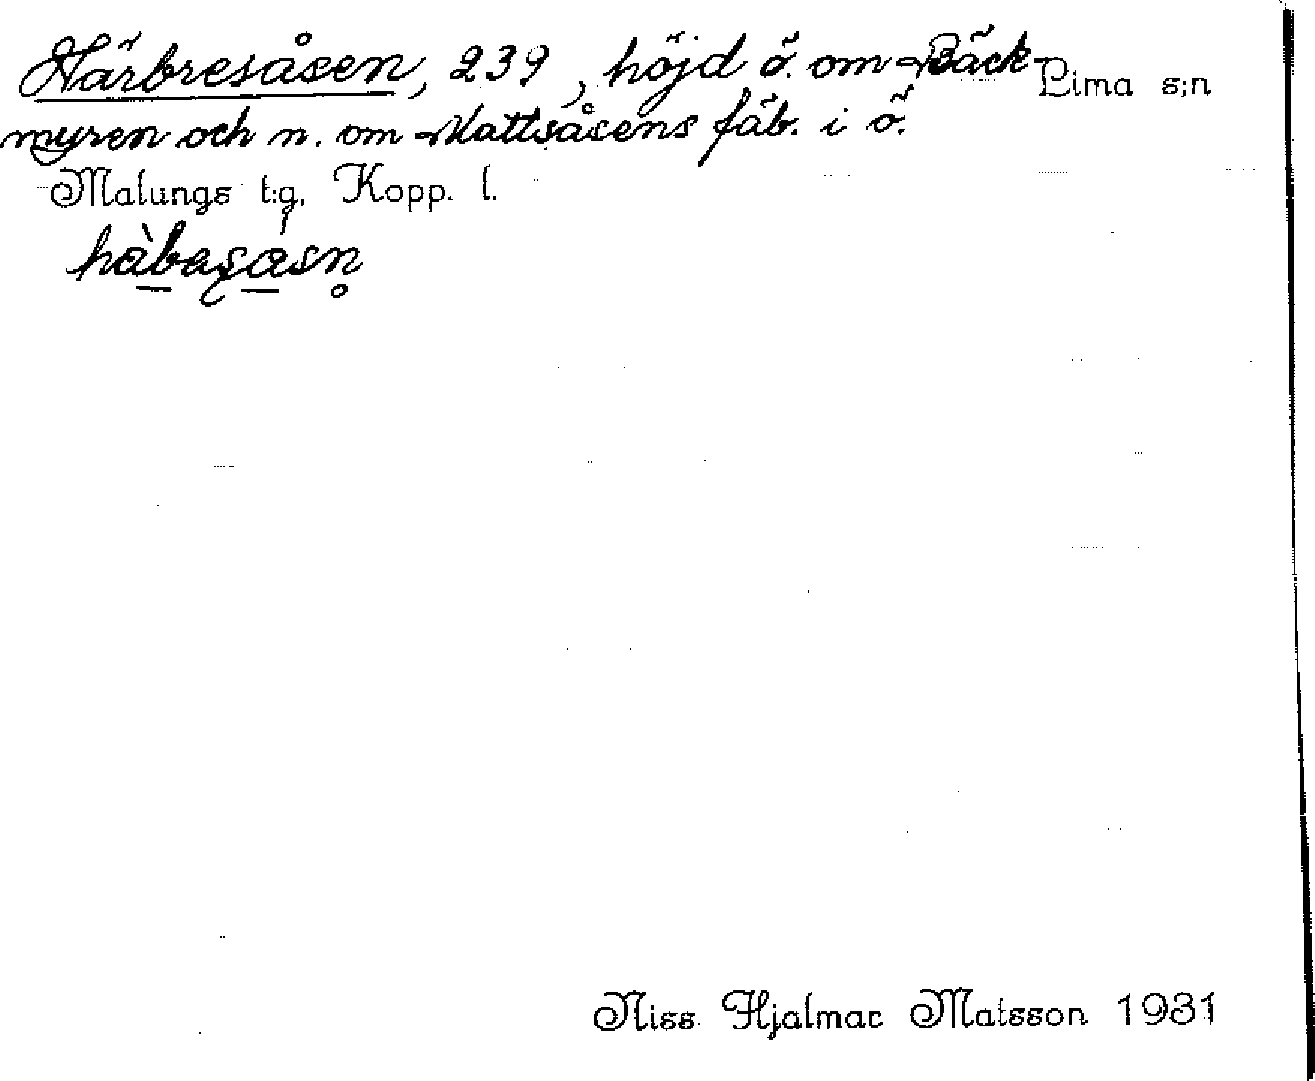 Härbresåsen, 239, höjd ö. om Bäck-
Lima s:n
myren och n. om Mattsåsens fäb. i ö.
Malungs t:g. Kopp. l.
Niss Hjalmar Matsson 1931